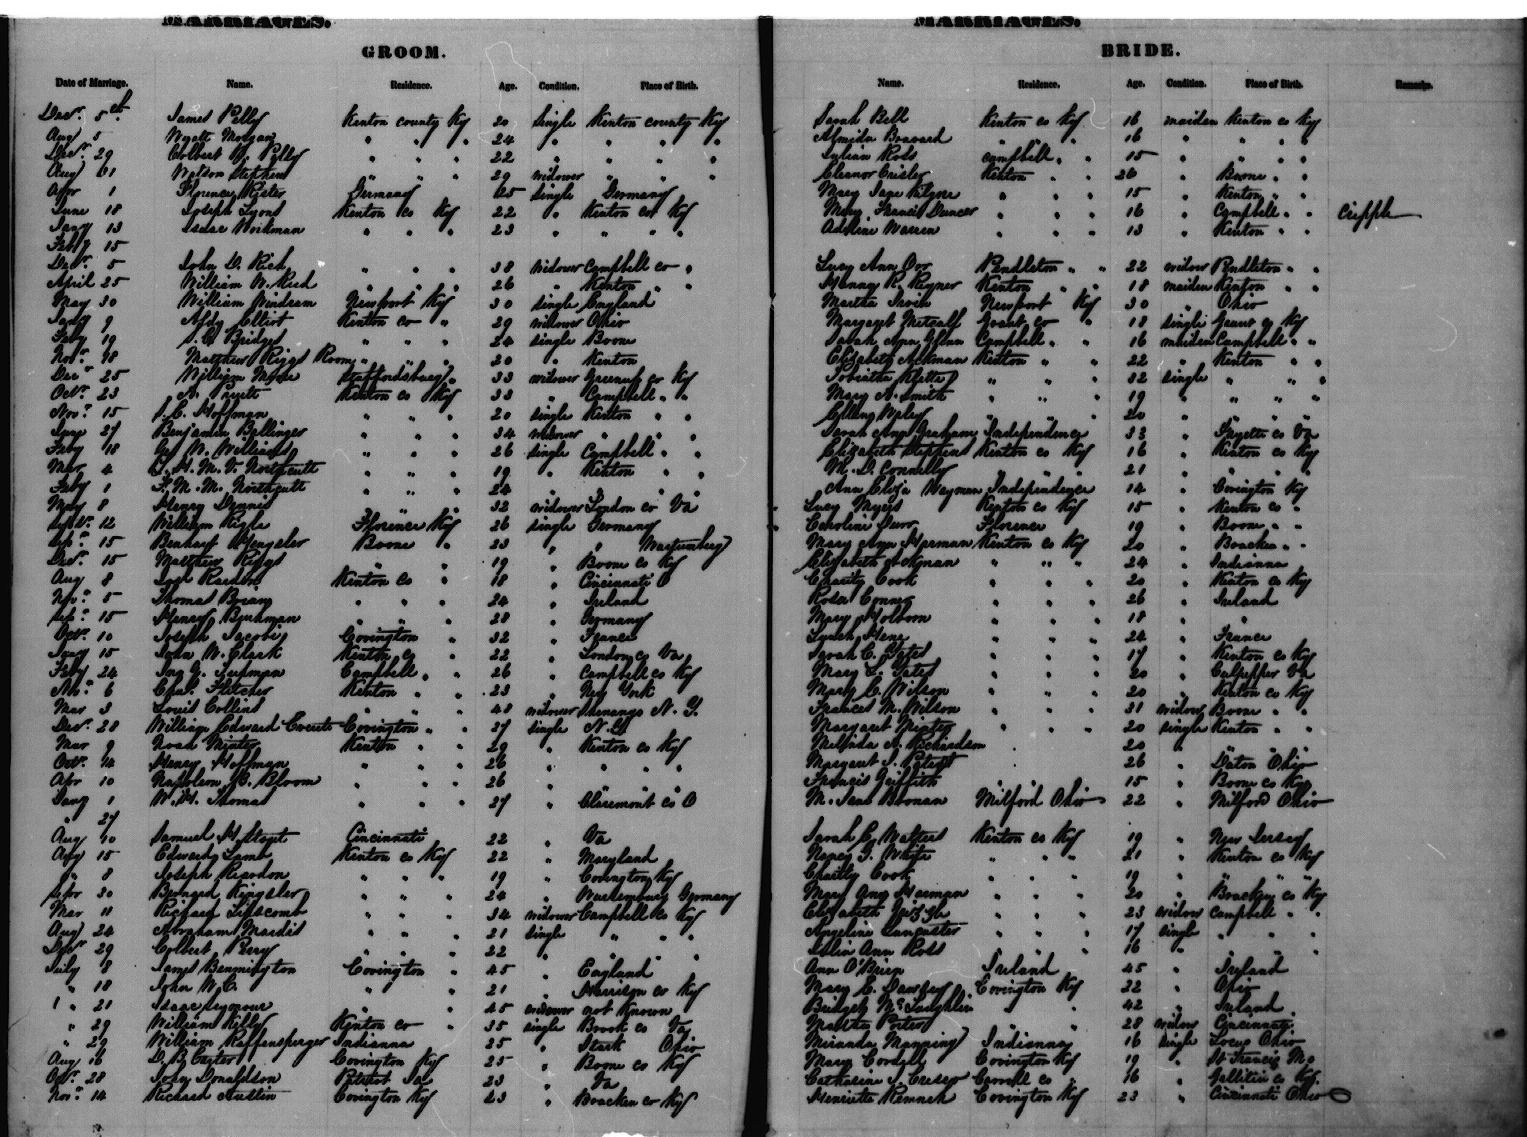 MARRIAGES. MARRIAGES.
GROOM. BRIDE.
Date of Marriage. Name. Residence. Age. Condition. Place of Birth. Name. Residence. Age. Condition. Place of Birth. Remarks.
Decr. 5 James Pelly Kenton county Ky 20 Single Kenton county Ky Sarah Bell Kenton co Ky 16 maiden Kenton co Ky
Aug 5 Wyatt Morgan " " " 24 " " " " Almida 16 " " " "
Decr. 29 Colbert Pelly " " " 22 " " " " Julian Ross Campbell " " 15 " " " "
Aug Watson Stephens " " " 29 widower " " " Eleanor Crisler Kenton " " 26 " Boone " "
Apr 1 Florence Germany 25 single Germany Mary Jane " " " 15 " Kenton " "
June 18 Joseph Lyons Kenton co Ky 22 " Kenton co Ky Mary Francis " " " 16 " Campbell " " Cripple
Jany 13 Isaac Woodman " " " 23 " " " " Adeline Warren " " " 13 " Kenton " "
Feby 15
Decr. 5 John D. Rich " " " 38 widower Campbell co " Lucy Ann Orr Pendleton " " 22 widow Pendleton " "
April 25 William W. Rich " " " 26 " Kenton " " R. Rayner Kenton " " 18 maiden Kenton " "
May 30 William Windsam Newport Ky 30 single England Martha Irwin Newport Ky 30 " Ohio
Jany 9 Elliot Kenton co " 29 widower Ohio Margaret Metcalf Grant co " 18 single Grant co Ky
Feby 19 Bridges " " " 24 single Boone Sarah Ann Glenn Campbell " " 16 maiden Campbell " "
Novr. 18 Matthew Riggs " " 20 " Kenton Elizabeth Ackman Kenton " " 22 " Kenton " "
Decr. 25 William Staffordsburg " 33 widower Greenup co Ky Tobitha " " " 32 single " " "
Octr. 23 Kenton co Ky 33 " Campbell " " Mary A. Smith " " " 19 " " " "
Novr. 15 J. C. Hoffman " " " 20 single Kenton " " " " " 20 "
27 Benjamin Ballinger " " " 34 widower " " " Sarah Ann Graham Independence 33 " Fayette co Va
Feby 18 Geo W. Williams " " " 26 single Campbell " " Elizabeth Stephens Kenton co Ky 16 " Kenton co Ky
Mar 4 Northcutt " " " 19 " Kenton " " M. D. Connelly " " " 21 " " " "
Feby 1 F. M. M. Northcutt " " " 24 " " " " Ann Eliza Wayman Independence 14 " Covington Ky
May 8 Henry Dennis " " " 32 widower London co Va Lucy Myers Kenton co Ky 15 " Kenton co "
Septr. 12 William Florence Ky 26 single Germany Caroline Florence 19 " Boone " "
15 Boone " 23 " " Wurtemberg Mary Ann Harman Kenton co Ky 20 " Bracken " "
Decr. 15 Matthew Riggs " " 19 " Boone co Ky Elizabeth " " " 24 " Indianna
Aug 8 Kenton co " 18 " Cincinnati O Charity Cook " " " 20 " Kenton co Ky
Novr. 5 Thomas " " " 24 " Ireland Rosa Conner " " " 26 " Ireland
15 Henry " " " 28 " Germany Mary Holborn " " " 18 " "
Octr. 10 Joseph Jacobi Covington " 32 " France " " " 24 " France
Jany 15 John W. Clark Kenton co " 22 " London co Va Sarah C. Yates " " " 17 " Kenton co Ky
Feby 24 Campbell " " 26 " Campbell co Ky Mary L. Yates " " " 20 " Culpepper Va
6 Fletcher Kenton " " 23 " New York Mary C. Wilson " " " 20 " Kenton co Ky
Mar 3 Louis Collins " " " 48 widower N. Y. Frances M. Wilson " " " 31 widow Boone " "
Decr. 28 William Edward Covington " " 27 single Margaret " " " 20 single Kenton " "
Mar 9 Noah Kenton " " 29 " Kenton co Ky Richardson 20 " " "
Octr. 14 Henry Hoffman " " " 26 " " " " Margaret " " " 26 " Daton Ohio
Apr 10 Napoleon B. Bloom " " " 26 " Francis Griffith " " " 15 " Boone co Ky
Jany 1 W. H. Thomas " " " 27 " Claremont co O M. Jane Milford Ohio 22 " Milford Ohio
" 27
Aug 10 Samuel H. Cincinnati 22 " Va Sarah C. Walters Kenton co Ky 19 " New Jersey
Aug 15 Edward Lamb Kenton co Ky 22 " Maryland Nancy J. White " " " 21 " Kenton co Ky
" 8 Joseph Reardon " " " 19 " Covington Ky Charity Cook " " " 19 " " "
30 " " " 24 " Wurtemburg Germany Mary Ann Harman " " " 20 " Bracken co Ky
Mar 11 Richard Lipscomb " " " 34 widower Campbell co Ky Elizabeth " " " 23 widow Campbell " "
Aug 24 Abraham Mardis " " " 21 single " " " Angeline Lancaster " " " 17 single " " "
Decr. 29 Colbert " " " 22 " " " " Ann Ross " " " 16 " " "
July 8 James Bennington Covington " 45 " England Ann O'Brien Ireland 45 " Ireland
" 18 John W. " " 21 " Harrison co Ky Mary C. Covington Ky 22 " Ohio
" 21 Isaac Seymour " " 45 widower not Known Bridget McLaughlin " " 42 " Ireland
" 29 William Kelly Kenton co " 35 single Brook co Va Martha Porter " " 28 widow Cincinnati
" 29 William Raffensperger Indianna 25 " Stark Ohio Miranda Manning Indianna 16 single Ohio
Aug 16 D. B. Carter Covington Ky 25 " Boone co Ky Mary Cordell Covington Ky 19 " St Francis Mo
Oct. 28 John Donaldson 23 " Va Catharine Carroll co " 16 " Gallitin co Ky
Novr. 14 Richard Austin Covington Ky 23 " Bracken co Ky Henrietta Covington Ky 23 " Cincinnati Ohio